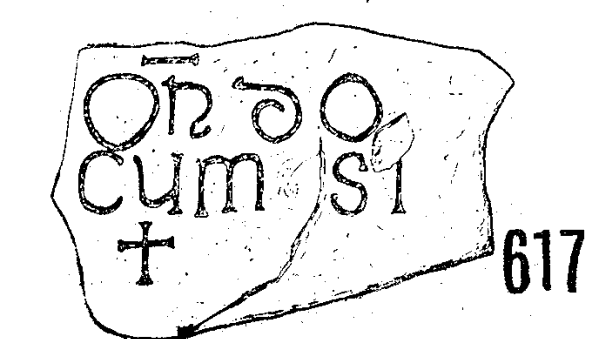 Or̄ do
cumsi
+
617